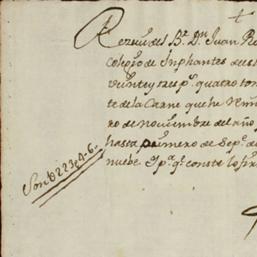 Recevi del Br. Dn Juan Ro
Colegio de Inphantes de es
veinte y tres ps. quatro tom
te de la Carne que he Rem
ro de Noviembre del año
hasta primero de Sepe. de
nuebe Y pa. qe conste lo fir
Son 0223 ps 4-6